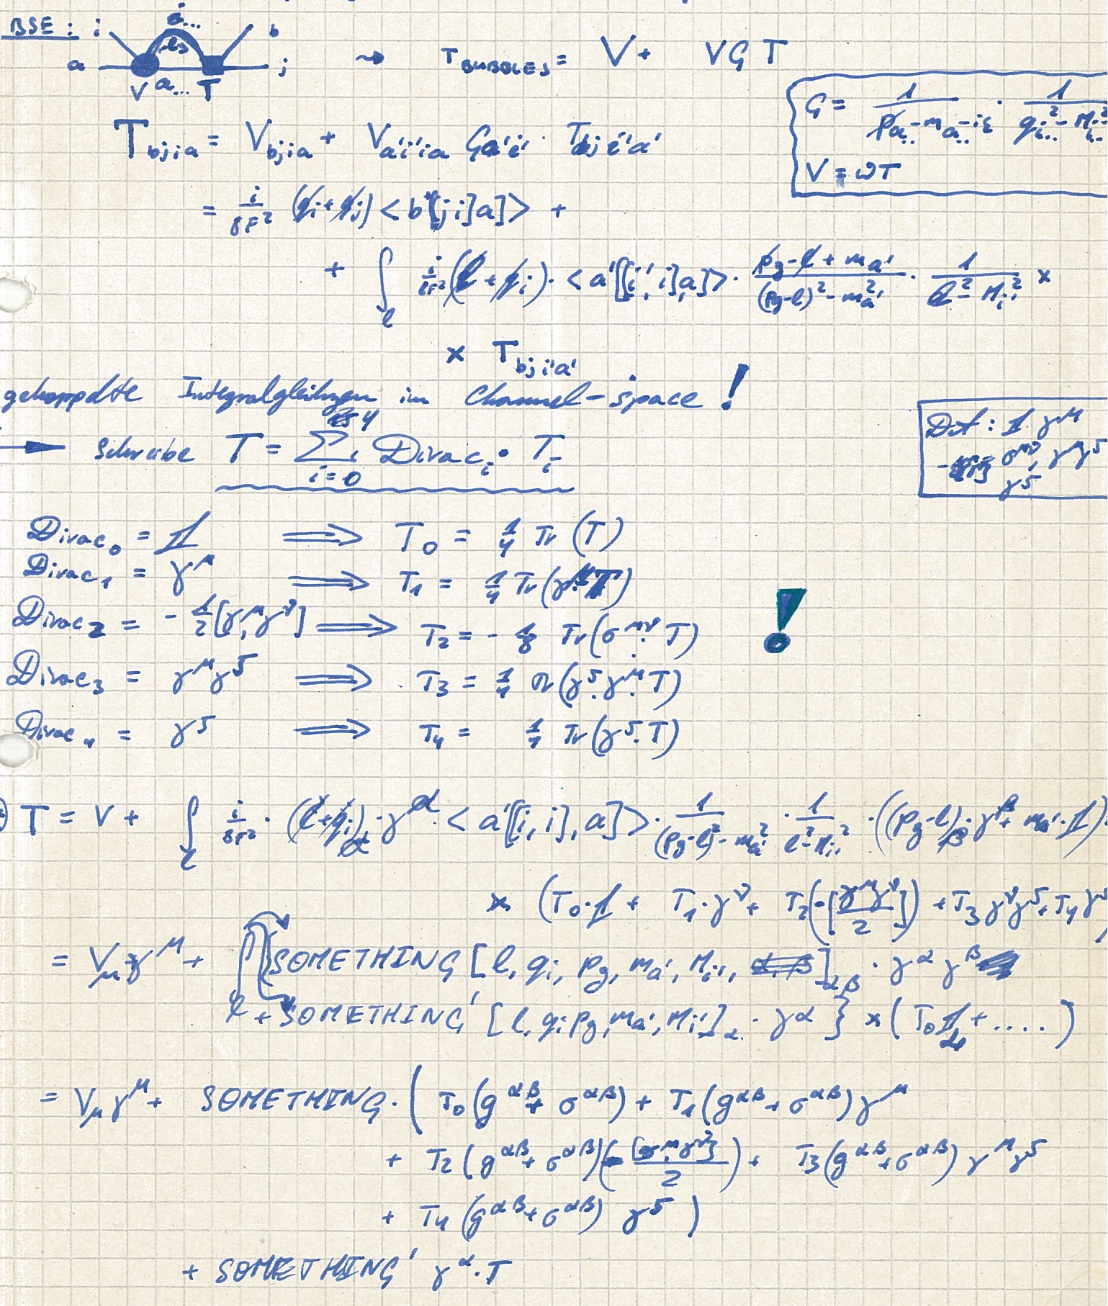 BSE: i i... b
a l j
V a... T
⇝ T_BUBBLES = V + V G T
G = 1/(p̸_a.. - m_a.. - iε) · 1/(q_i..² - M_i..²)
V = WT
T_bjia = V_bjia + V_a'i'ia G_a'i' · T_bji'a'
= i/8F² (q̸_i + q̸_j) <b†[[j i] a]> +
+ ∫_l i/8F² (l̸ + q̸_i) · <a'[[i', i], a]> · (p̸_g - l̸ + m_a')/((p_g - l)² - m_a'²) · 1/(l² - M_i'²) ×
× T_bji'a'
gekoppelte Integralgleichungen im Channel-space !
→ Schreibe T = Σ_{i=0}^{4} Dirac_i · T_i
Dirac_0 = 𝟙 ⟹ T_0 = 1/4 Tr(T)
Dirac_1 = γ^μ ⟹ T_1 = 1/4 Tr(γ^μ T)
Dirac_2 = -1/2 [γ^μ, γ^ν] ⟹ T_2 = - 1/8 Tr(σ^μν · T)
Dirac_3 = γ^μ γ^5 ⟹ T_3 = 1/4 Tr(γ^5 · γ^μ · T)
Dirac_4 = γ^5 ⟹ T_4 = 1/4 Tr(γ^5 · T)
!
: 𝟙 γ^μ
σ^μν, γ^μ γ^5
γ^5
T = V + ∫_l i/8F² · (l + q_i)_α · γ^α · <a'[[i, i], a]> · 1/((p_g - l)² - m_a'²) · 1/(l² - M_i'²) · ((p_g - l)_β · γ^β + m_a' · 𝟙) ·
× (T_0 · 𝟙 + T_1 · γ^ν + T_2 (-[γ^μ γ^ν]/2) + T_3 γ^ν γ^5 + T_4 γ^5
= V_μ γ^μ + ∫_l { SOMETHING [l, q_i, p_g, m_a', M_i', ]_αβ · γ^α γ^β
+ SOMETHING' [l, q_i p_g, m_a', M_i']_α · γ^α } × (T_0 𝟙 + ....)
= V_μ γ^μ + SOMETHING · ( T_0 (g^αβ + σ^αβ) + T_1 (g^αβ + σ^αβ) γ^μ
+ T_2 (g^αβ + σ^αβ)(-[γ^μ, γ^ν]/2) + T_3 (g^αβ + σ^αβ) γ^μ γ^5
+ T_4 (g^αβ + σ^αβ) γ^5 )
+ SOMETHING' γ^α · T